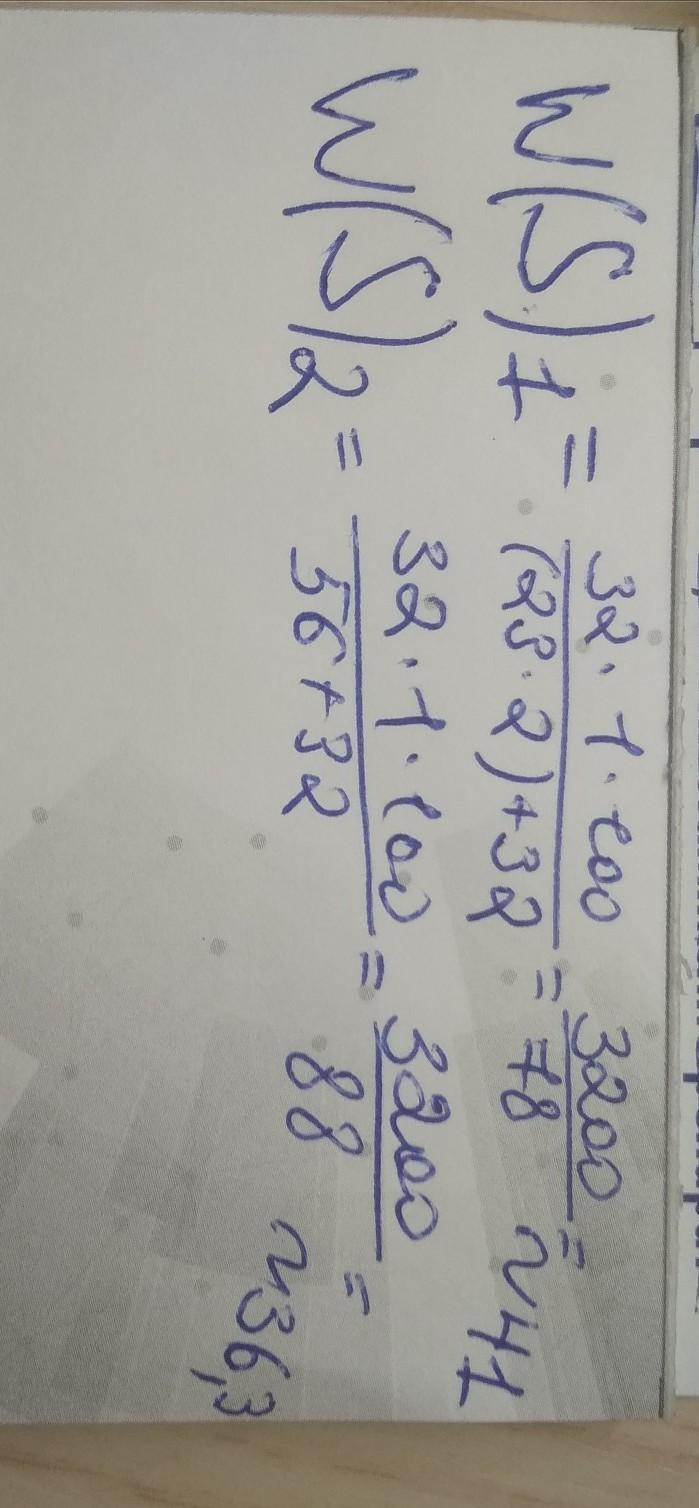 W(S)1 = 32·1·100 / (23·2)+32 = 3200 / 78 = ~41
W(S)2 = 32·1·100 / 56+32 = 3200 / 88 = ~36,3